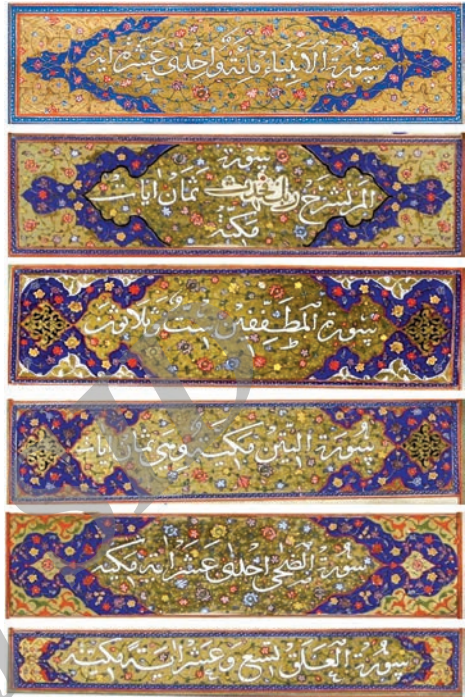 سورة الانبياء مائة واحدى عشر اية
سورة
الم نشرح ثمان ايات
مكية
سورة المطففين ست وثلاثون
سورة التين مكية وهي ثمان ايات
سورة الضحى احدى عشر اية مكية
سورة العلق تسع وعشر اية مكية